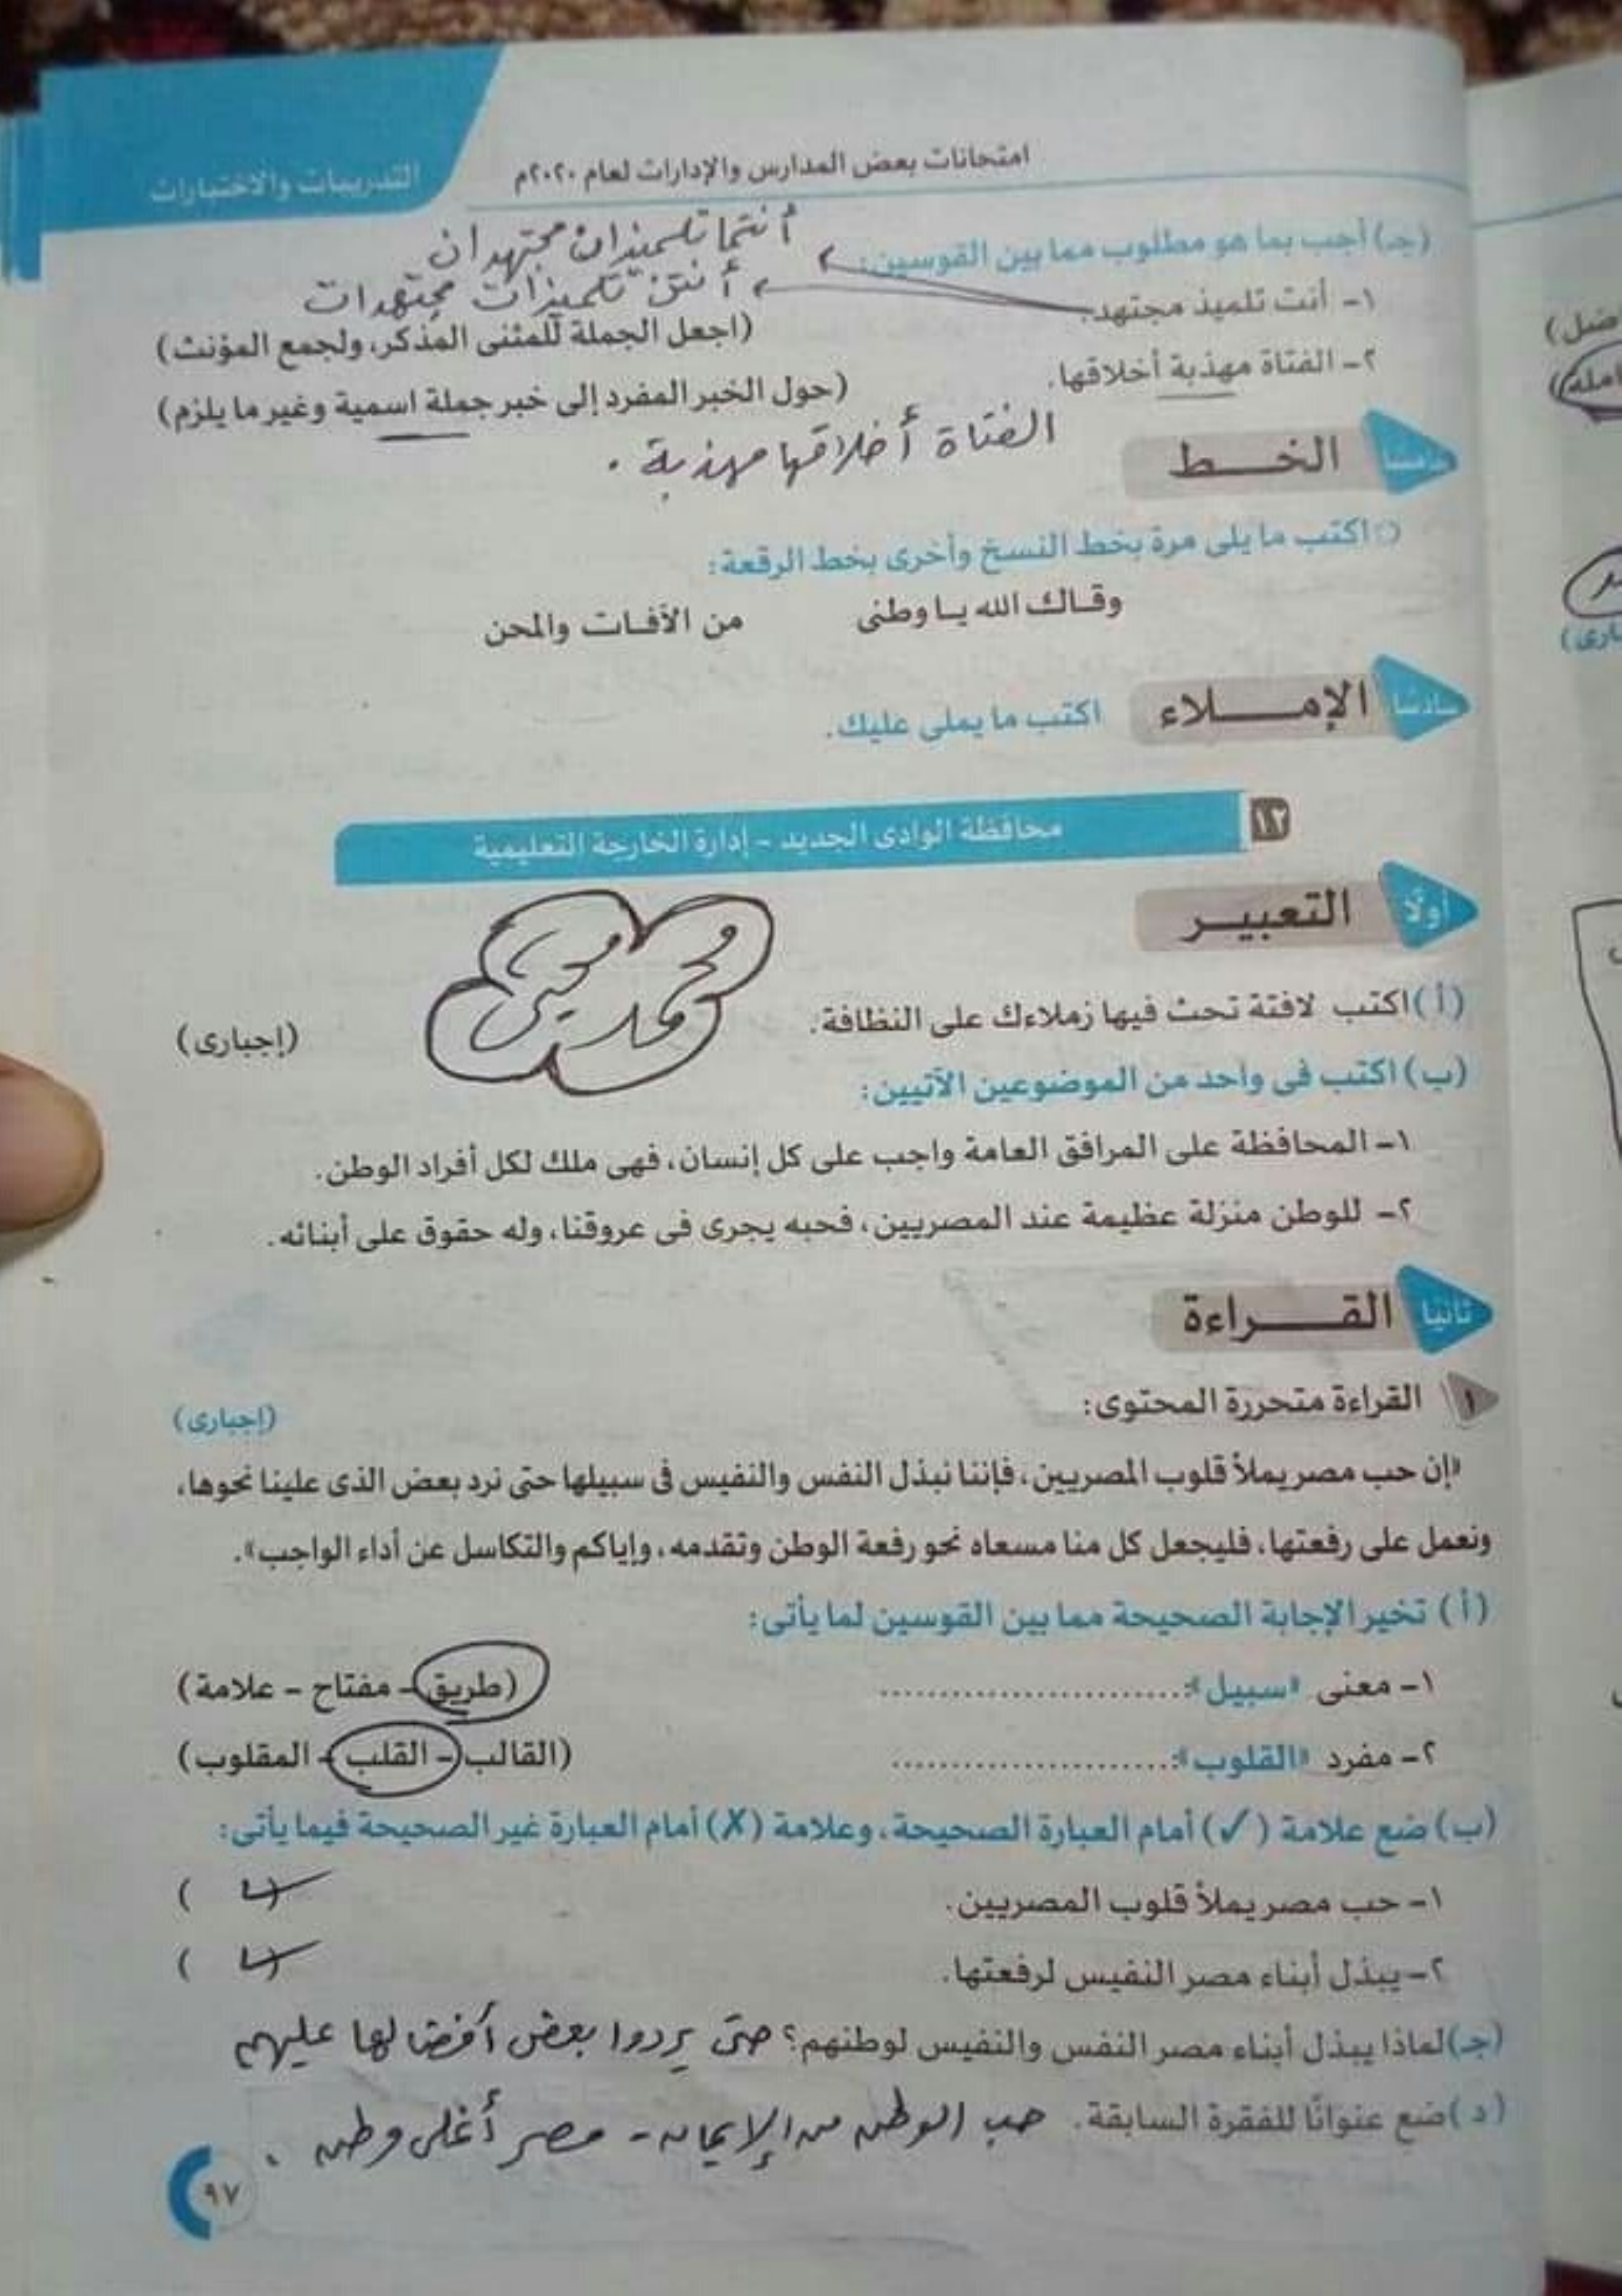 امتحانات بعض المدارس والإدارات لعام ٢٠٢٠م
التدريبات والاختبارات
(جـ) أجب بما هو مطلوب مما بين القوسين:
أنتما تلميذان مجتهدان
١- أنت تلميذ مجتهد.
أنتن تلميذات مجتهدات
(اجعل الجملة للمثنى المذكر، ولجمع المؤنث)
٢- الفتاة مهذبة أخلاقها.
(حول الخبر المفرد إلى خبر جملة اسمية وغير ما يلزم)
الفتاة أخلاقها مهذبة .
خامسًا الخـــط
اكتب ما يلى مرة بخط النسخ وأخرى بخط الرقعة:
وقـاك الله يـا وطنى من الآفـات والمحن
سادسًا الإمـــلاء اكتب ما يملى عليك.
١٢ محافظة الوادى الجديد - إدارة الخارجة التعليمية
أولًا التعبيـر
محمد
(أ) اكتب لافتة تحث فيها زملاءك على النظافة. (إجبارى)
(ب) اكتب فى واحد من الموضوعين الآتيين:
١- المحافظة على المرافق العامة واجب على كل إنسان، فهى ملك لكل أفراد الوطن.
٢- للوطن منزلة عظيمة عند المصريين، فحبه يجرى فى عروقنا، وله حقوق على أبنائه.
ثانيًا القـــراءة
١ القراءة متحررة المحتوى: (إجبارى)
«إن حب مصر يملأ قلوب المصريين، فإننا نبذل النفس والنفيس فى سبيلها حتى نرد بعض الذى علينا نحوها،
ونعمل على رفعتها، فليجعل كل منا مسعاه نحو رفعة الوطن وتقدمه، وإياكم والتكاسل عن أداء الواجب».
(أ) تخير الإجابة الصحيحة مما بين القوسين لما يأتى:
١- معنى «سبيل»: .......................... (طريق - مفتاح - علامة)
٢- مفرد «القلوب»: .......................... (القالب - القلب - المقلوب)
(ب) ضع علامة (✓) أمام العبارة الصحيحة، وعلامة (✗) أمام العبارة غير الصحيحة فيما يأتى:
١- حب مصر يملأ قلوب المصريين. (✓)
٢- يبذل أبناء مصر النفيس لرفعتها. (✓)
(جـ) لماذا يبذل أبناء مصر النفس والنفيس لوطنهم؟ حتى يردوا بعض أفضالها عليهم
(د) ضع عنوانًا للفقرة السابقة. حب الوطن من الإيمان - مصر أغلى وطن .
٩٧